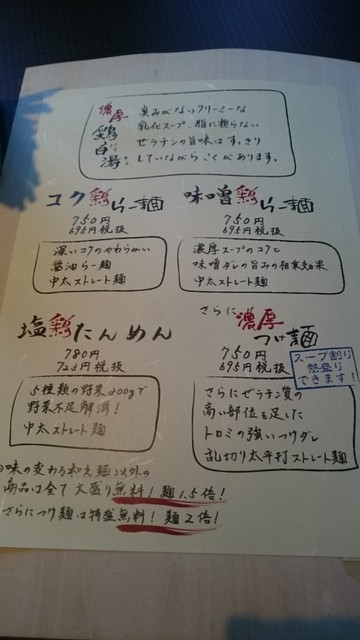 濃厚
鶏白湯
臭みがないクリーミーな
乳化スープ、脂に頼らない
ゼラチンの旨味はすっきり
していながらこくがあります。
コク鶏らー麺
750円
695円税抜
深いコクのやわらかい
醤油らー麺
中太ストレート麺
味噌鶏らー麺
750円
695円税抜
濃厚スープのコクと
味噌ダレの旨みの相乗効果
中太ストレート麺
塩鶏たんめん
780円
723円税抜
5種類の野菜200gで
野菜不足解消!
中太ストレート麺
さらに濃厚
つけ麺
750円
695円税抜
スープ割り
熱盛り
できます!
さらにゼラチン質の
高い部位を足した
トロミの強いつけダレ
乱切り太平打ストレート麺
味の変わる和え麺以外の
商品は全て大盛り無料!麺1.5倍!
さらにつけ麺は特盛無料!麺2倍!